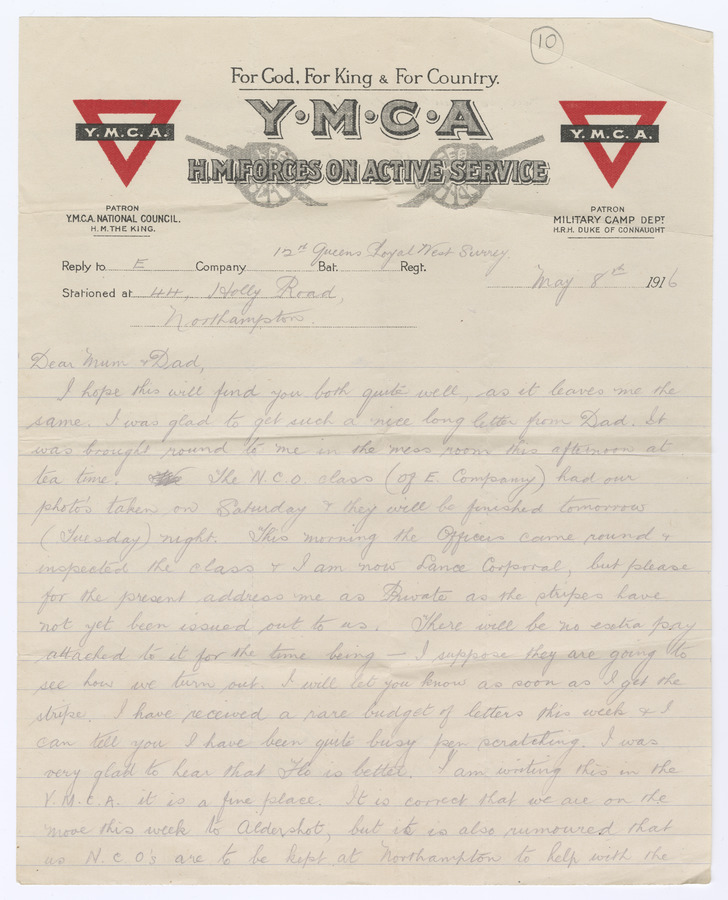 10
For God, For King & For Country.
Y·M·C·A
H.M. FORCES ON ACTIVE SERVICE
Y.M.C.A.
Y.M.C.A.
PATRON
Y.M.C.A. NATIONAL COUNCIL.
H.M. THE KING.
PATRON
MILITARY CAMP DEPT
H.R.H. DUKE OF CONNAUGHT
Reply to E Company 12th Queens Royal West Surrey Bat. Regt.
May 8th 1916
Stationed at 44, Holly Road,
Northampton.
Dear Mum & Dad,
I hope this will find you both quite well, as it leaves me the
same. I was glad to get such a nice long letter from Dad. It
was brought round to me in the mess room this afternoon at
tea time. The N.C.O class (of E. Company) had our
photo's taken on Saturday & they will be finished tomorrow
(Tuesday) night. This morning the Officers came round &
inspected the class & I am now Lance Corporal, but please
for the present address me as Private as the stripes have
not yet been issued out to us. There will be no extra pay
attached to it for the time being — I suppose they are going to
see how we turn out. I will let you know as soon as I get the
stripe. I have received a rare budget of letters this week & I
can tell you I have been quite busy pen scratching. I was
very glad to hear that Flo is better. I am writing this in the
Y.M.C.A. it is a fine place. It is correct that we are on the
move this week to Aldershot, but it is also rumoured that
us N.C.O's are to be kept at Northampton to help with the